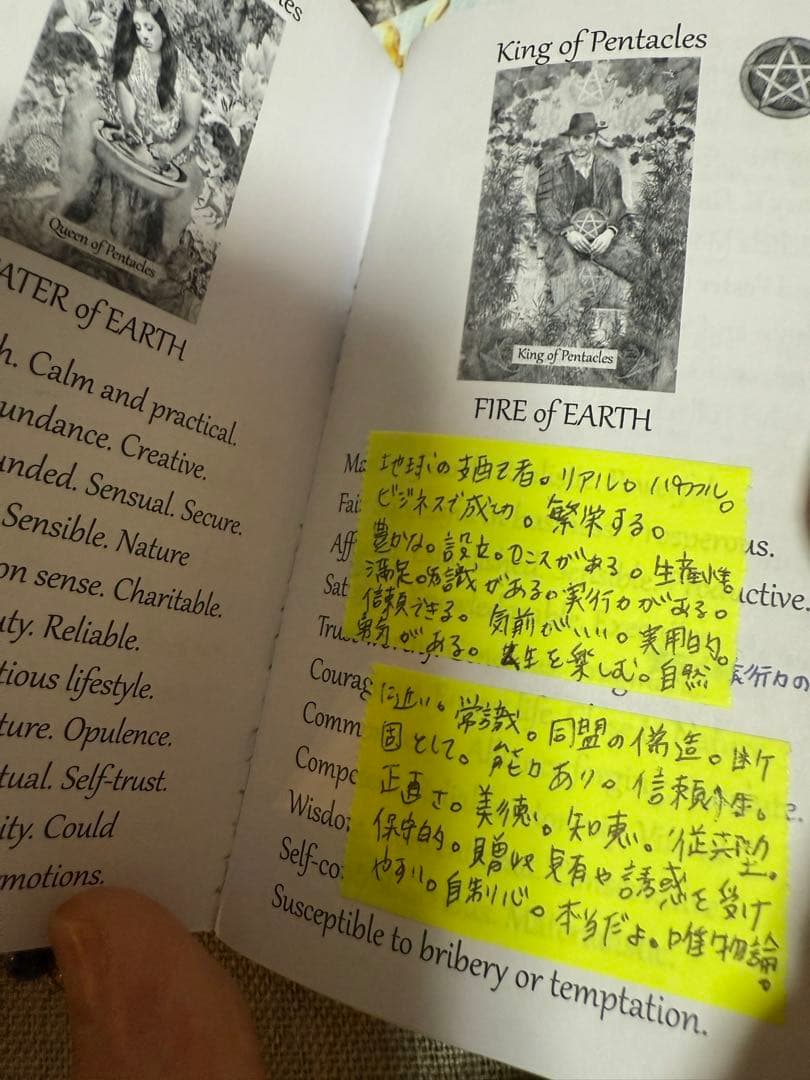 es
Queen of Pentacles
ATER of EARTH
h. Calm and practical.
undance. Creative.
unded. Sensual. Secure.
Sensible. Nature
on sense. Charitable.
uty. Reliable.
tious lifestyle.
ture. Opulence.
tual. Self-trust.
ity. Could
motions.
King of Pentacles
King of Pentacles
FIRE of EARTH
Ma
Fai
us.
Aff
uctive.
Sat
Tru
Courag
Comm
Compe
Wisdo
Self-co
Susceptible to bribery or temptation.
地球の支配者。リアル。パワフル。
ビジネスで成功。繁栄する。
豊かな。設立。センスがある。生産性。
満足。知識がある。実行力がある。
信頼できる。気前がいい。実用的。
勇気がある。人生を楽しむ。自然
実行力の
に近い。常識。同盟の偽造。断
固として。能力あり。信頼性。
正直さ。美徳。知恵。従英型。
保守的。贈収賄や誘惑を受け
やすい。自制心。本当だよ。唯物論。